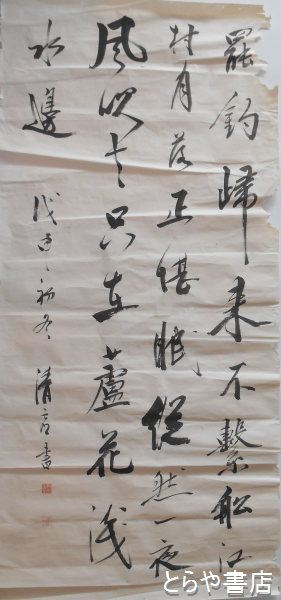 罷釣歸来不繫船江
村月落正堪眠縱然一夜
風吹去只在蘆花淺
水邊
戊申初冬 清亭書
とらや書店